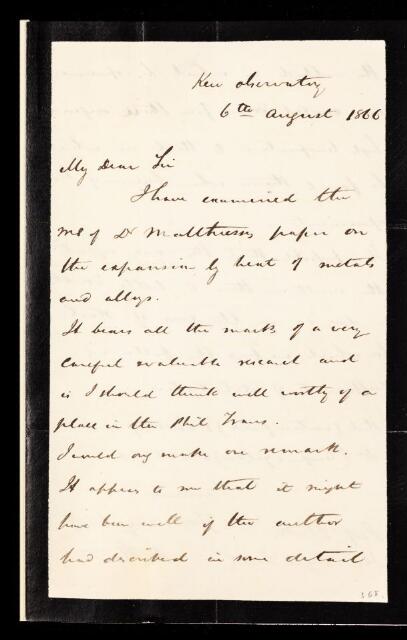 Kew Observatory
6th August 1866
My Dear Sir
I have examined the
MS of Dr Matthiessens paper on
the expansion by heat of metals
and alloys.
It bears all the marks of a very
careful & valuable research and
is I should think well worthy of a
place in the Phil Trans.
I would only make one remark.
It appears to me that it might
have been well if the author
had described in some detail
368